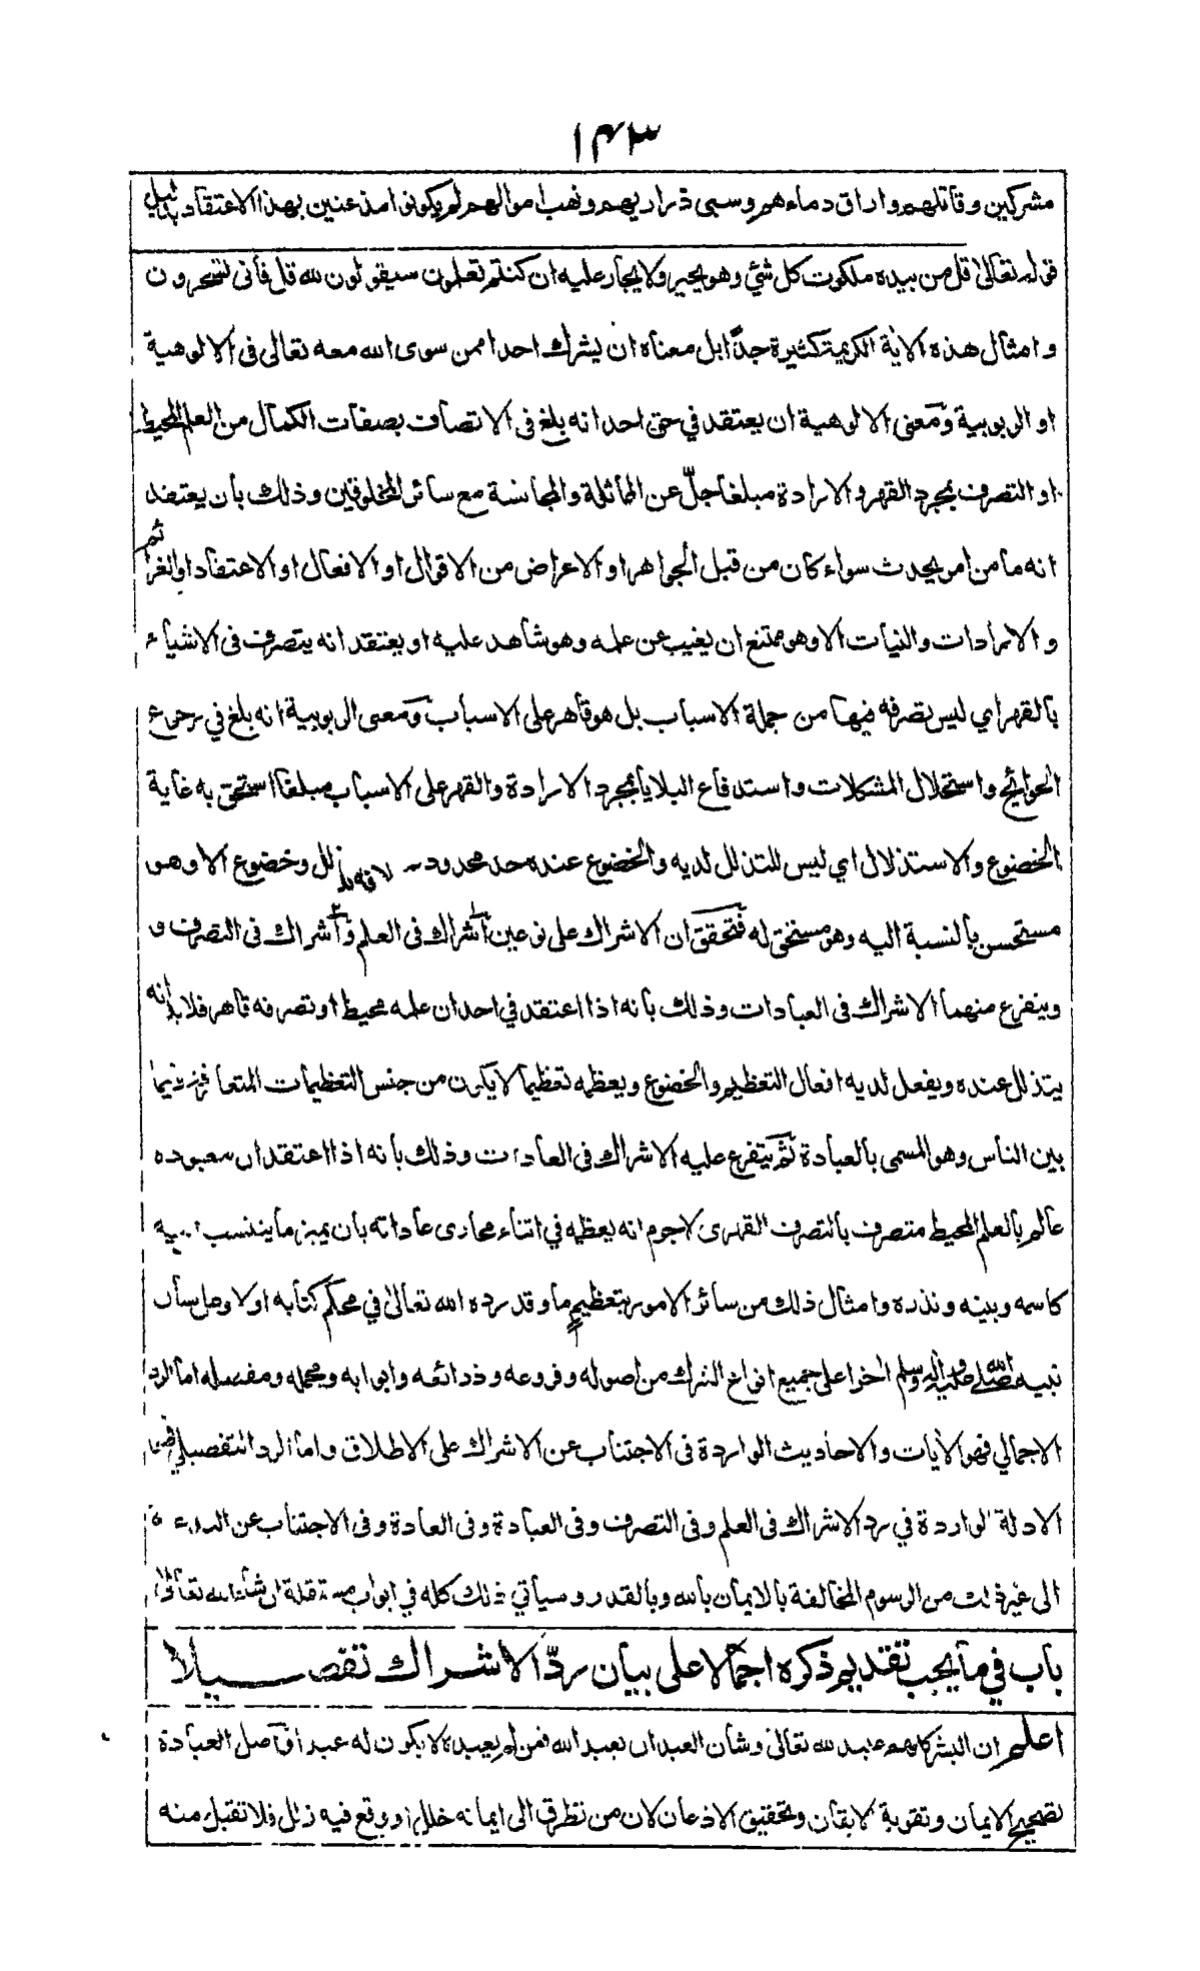 ۱۴۳
مشركين وقاتلهم واراق دماءهم وسبى ذراريهم ونهب اموالهم لم يكونوا مذعنين بهذا الاعتقاد بدليل
قوله تعالى قل من بيده ملكوت كل شئ وهو يجير ولا يجار عليه ان كنتم تعلمون سيقولون لله قل فأنى تسحرون
وامثال هذه الاية الكريمة كثيرة جدًّا بل معناه ان يشرك احدا ممن سوى الله معه تعالى فى الالوهية
او الربوبية ومعنى الالوهية ان يعتقد في حق احد انه بلغ فى الاتصاف بصفات الكمال من العلم المحيط
او التصرف بمجرد القهر والارادة مبلغا جلّ عن المماثلة والمجانسة مع سائر المخلوقين وذلك بأن يعتقد
انه ما من امر يحدث سواء كان من قبل الجواهر او الاعراض من الاقوال او الافعال او الاعتقاد او الغرائم
والارادات والنيات الا وهو ممتنع ان يغيب عن علمه وهو شاهد عليه او يعتقد انه يتصرف فى الاشياء
بالقهر اي ليس تصرفه فيها من جملة الاسباب بل هو قاهر على الاسباب ومعنى الربوبية انه بلغ في رجوع
الحوائج واستحلال المشكلات واستدفاع البلايا بمجرد الارادة والقهر على الاسباب مبلغا استحق به غاية
الخضوع والاستذلال اي ليس للتذلل لديه والخضوع عنده حد محدود لافه تذلل وخضوع الا وهو
مستحسن بالنسبة اليه وهو مستحق له فتحقق ان الاشراك على نوعين اشراك فى العلم واشراك فى التصرف و
ويتفرع منهما الاشراك فى العبادات وذلك بأنه اذا اعتقد في احد ان علمه محيط او تصرفه قاهر فلا بد انه
يتذلل عنده ويفعل لديه افعال التعظيم والخضوع ويعظمه تعظيما لا يكون من جنس التعظيمات المتعارفة فيما
بين الناس وهو المسمى بالعبادة ثم يتفرع عليه الاشراك فى العادات وذلك بأنه اذا اعتقد ان معبوده
عالم بالعلم المحيط متصرف بالتصرف القهرى لا جرم انه يعظمه في اثناء مجارى عاداته بأن يميز ما ينتسب اليه
كاسمه وبيته ونذره وامثال ذلك من سائر الامور بتعظيم ما وقد رده الله تعالى في محكم كتابه اولا وعلى لسان
نبيه صلى الله عليه واله وسلم اخرا على جميع انواع الشرك من اصوله وفروعه وذرائعه وابوابه ومجمله ومفصله اما الرد
الاجمالي فهو الآيات والاحاديث الواردة فى الاجتناب عن الاشراك على الاطلاق واما الرد التفصيلي فهى
الادلة الواردة في رد الاشراك فى العلم وفى التصرف وفى العبادة وفى العادة وفى الاجتناب عن البدعة
الى غير ذلك من الرسوم المخالفة بالايمان بالله وبالقدر وسيأتي ذلك كله في ابواب مستقلة ان شاء الله تعالى
باب في ما يجب تقديم ذكره اجمالا على بيان ردّ الاشراك تفصيلا
اعلم ان البشر كلهم عبيد لله تعالى وشأن العبد ان يعبد الله فمن لم يعبده لا يكون له عبدا واصل العبادة
تصحيح الايمان وتقوية الايقان وتحقيق الاذعان لان من تطرق الى ايمانه خلل او وقع فيه زلل فلا تقبل منه